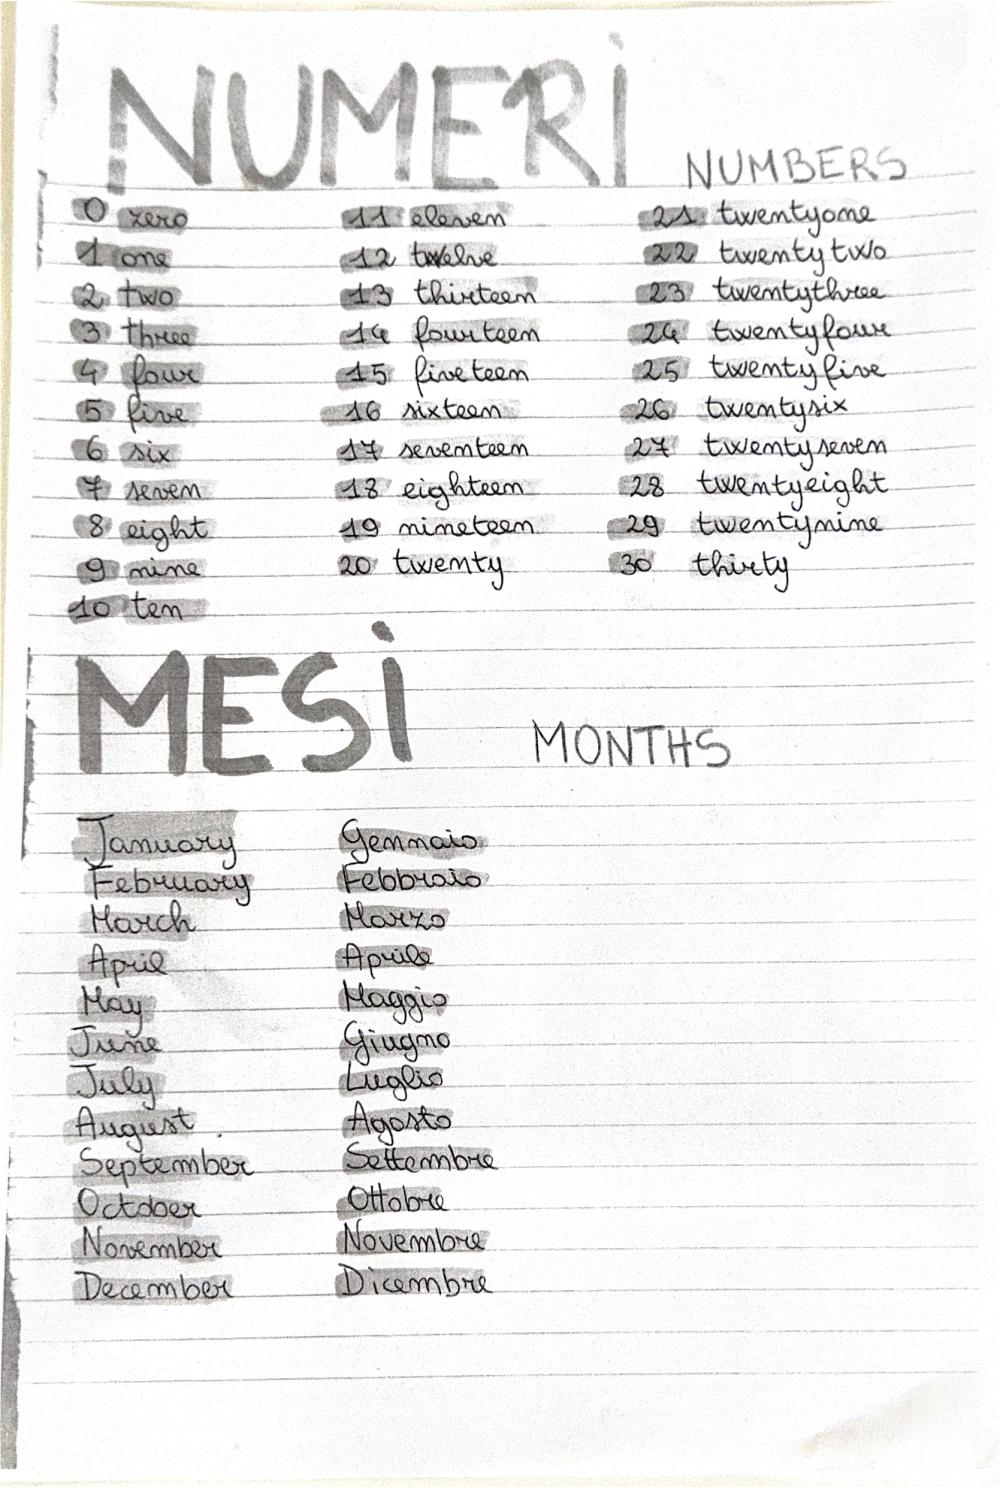 NUMERI NUMBERS
0 zero 11 eleven 21 twentyone
1 one 12 twelve 22 twentytwo
2 two 13 thirteen 23 twentythree
3 three 14 fourteen 24 twentyfour
4 four 15 fiveteen 25 twentyfive
5 five 16 sixteen 26 twentysix
6 six 17 seventeen 27 twentyseven
7 seven 18 eighteen 28 twentyeight
8 eight 19 nineteen 29 twentynine
9 nine 20 twenty 30 thirty
10 ten
MESI MONTHS
January Gennaio
February Febbraio
March Marzo
April Aprile
May Maggio
June Giugno
July Luglio
August Agosto
September Settembre
October Ottobre
November Novembre
December Dicembre